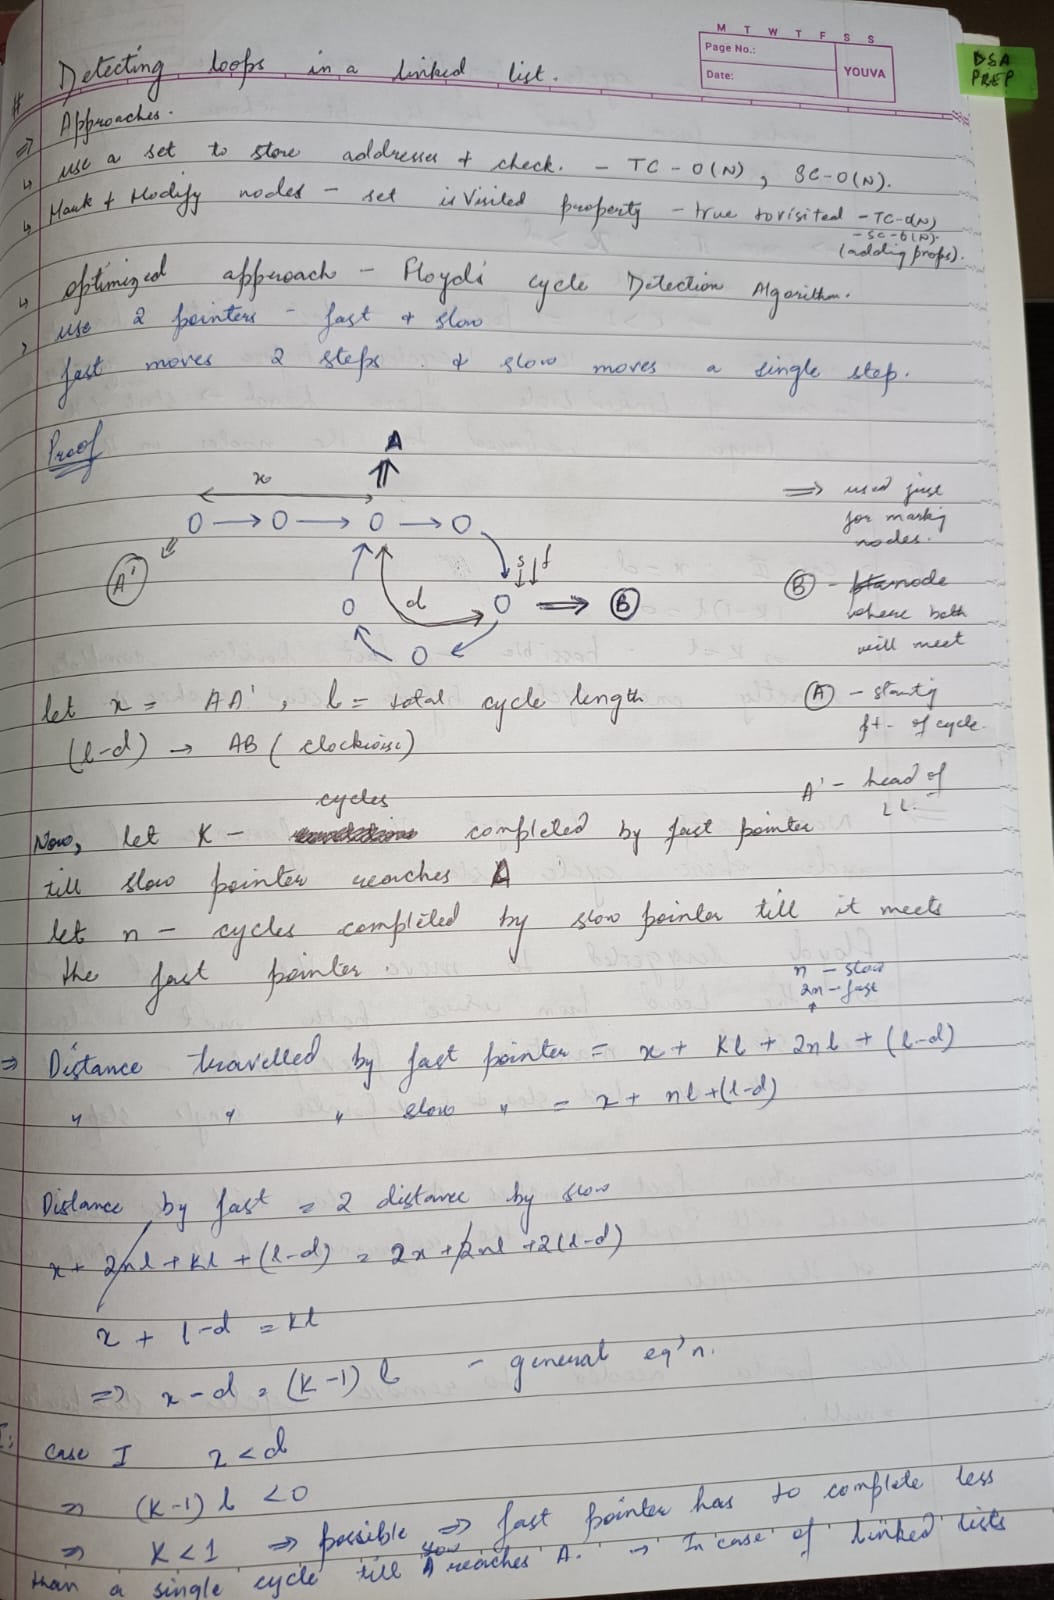 M T W T F S S
Page No.:
Date:
YOUVA
DSA
PREP
# Detecting loops in a linked list.
⇒ Approaches.
↳ use a set to store addresses & check. - TC - O(N), SC - O(N).
↳ Mark & Modify nodes - set isVisited property - true to visited - TC-O(N)
- SC - O(N).
(adding props).
↳ optimized approach - Floyd's cycle Detection Algorithm.
› use 2 pointers - fast & slow
fast moves 2 steps & slow moves a single step.
Proof
A
x
⇒ used just
for marking
nodes.
A'
s f
d
B
B - node
where both
will meet
let x = AA', l = total cycle length
A - starting
pt. of cycle.
(l-d) → AB (clockwise)
A' - head of
LL.
cycles
Now, let K - completed by fast pointer
till slow pointer reaches A
let n - cycles completed by slow pointer till it meets
the fast pointer.
n - slow
2n - fast
⇒ Distance travelled by fast pointer = x + Kl + 2nl + (l-d)
" " " slow " = x + nl + (l-d)
Distance by fast = 2 distance by slow
x + 2nl + Kl + (l-d) = 2x + 2nl + 2(l-d)
x + l-d = Kl
⇒ x - d = (K-1) l - general eq'n.
I: Case I x < d
⇒ (K-1) l < 0
⇒ K < 1 ⇒ possible ⇒ fast pointer has to complete less
than a single cycle till slow reaches A. → In case of linked lists